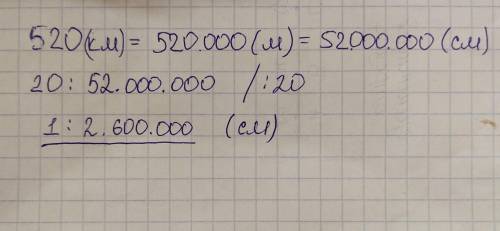 520(км) = 520.000 (м) = 52000.000 (см)
20 : 52.000.000 / : 20
1 : 2.600.000 (см)